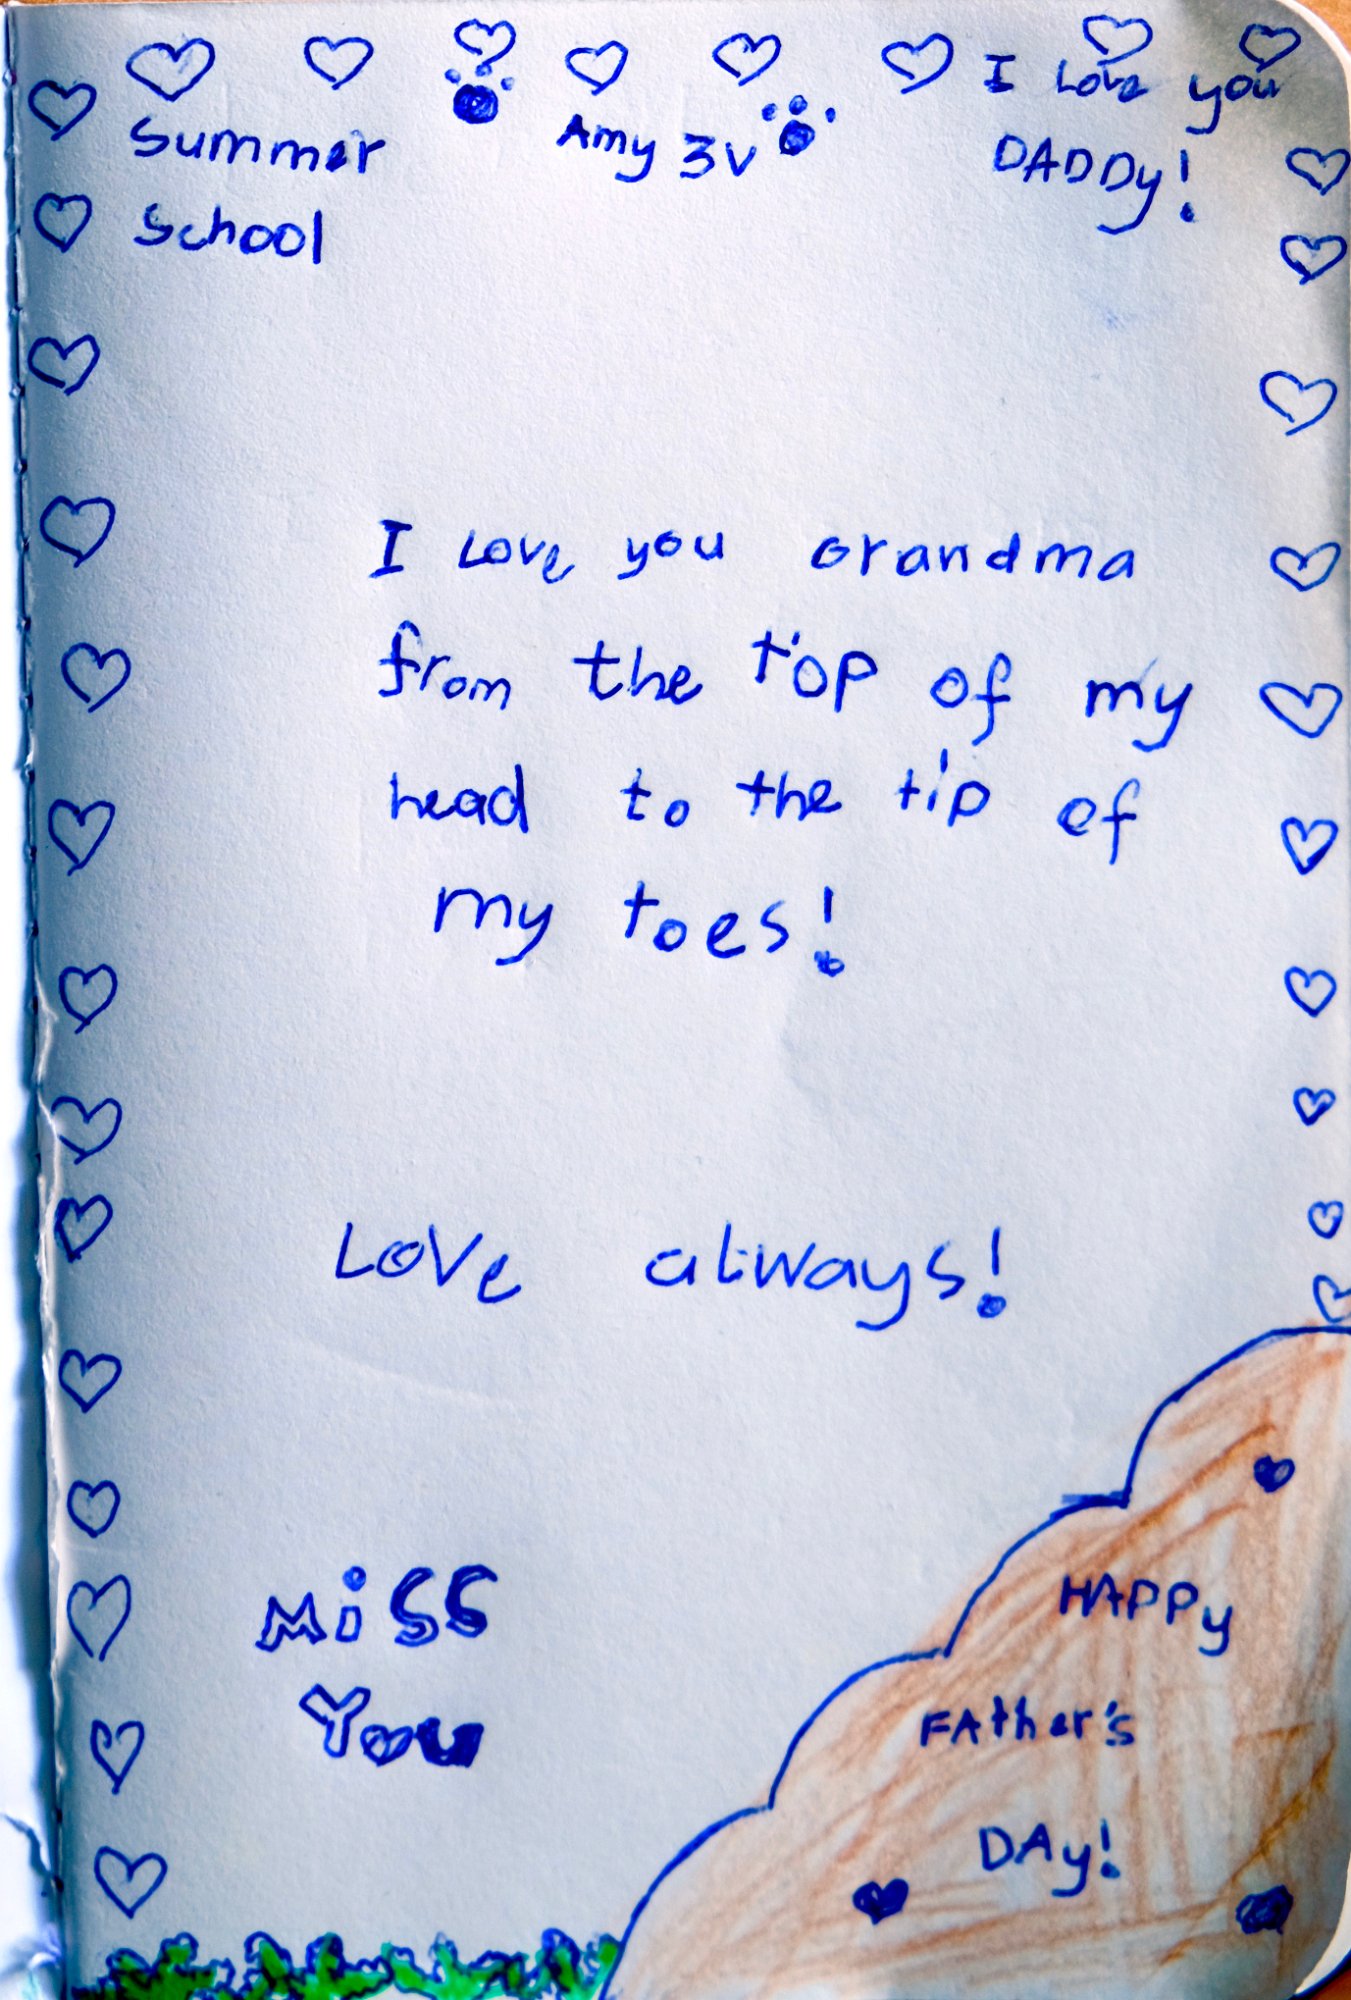 Summer
School
Amy 3V
I Love you
DADDy!
I Love you Grandma
from the top of my
head to the tip of
my toes!
Love always!
MiSS
You
HAPPy
FAther's
DAy!